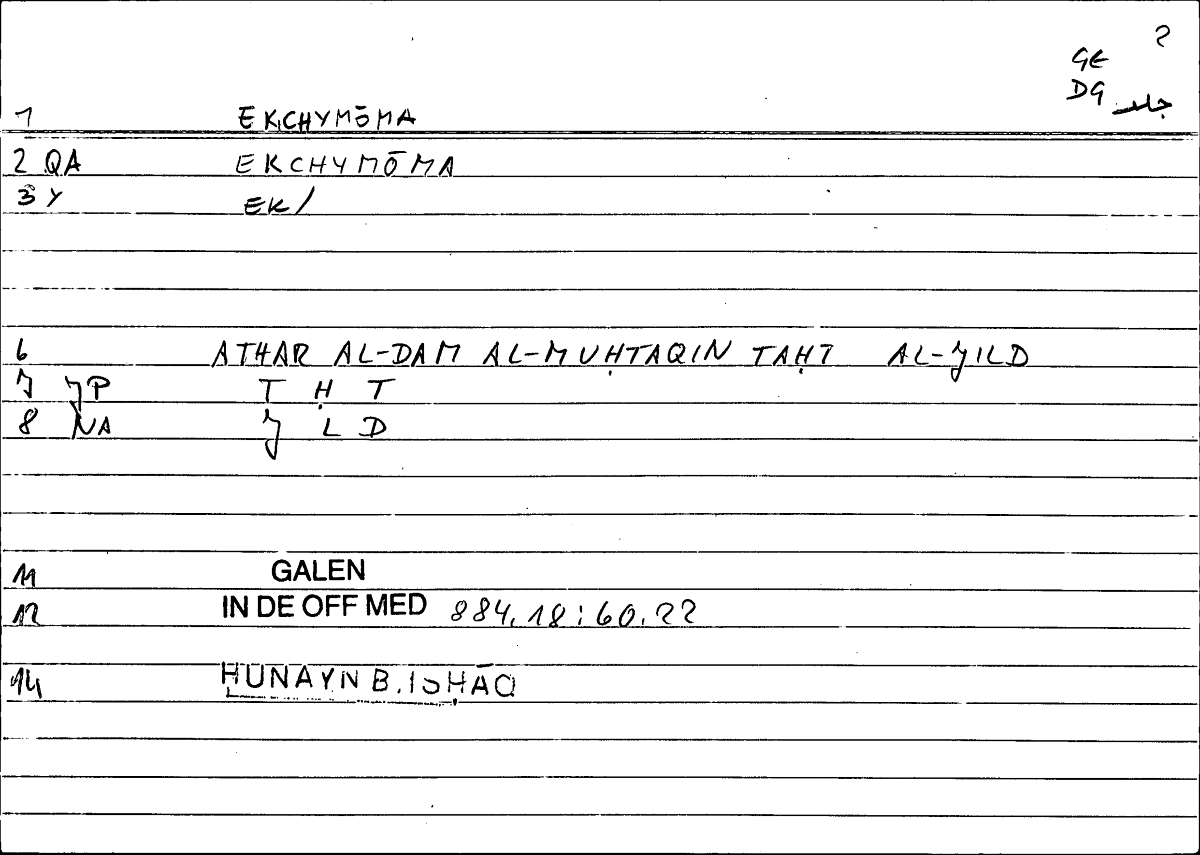 2
GE
DG جلد
1 EKCHYMŌMA
2 QA EKCHYMŌMA
3 Y EK/
6 ATHAR AL-DAM AL-MUḤTAQIN TAḤT AL-JILD
7 JP T Ḥ T
8 NA J L D
11 GALEN
12 IN DE OFF MED 884.18:60.22
14 HUNAYN B. ISḤĀQ